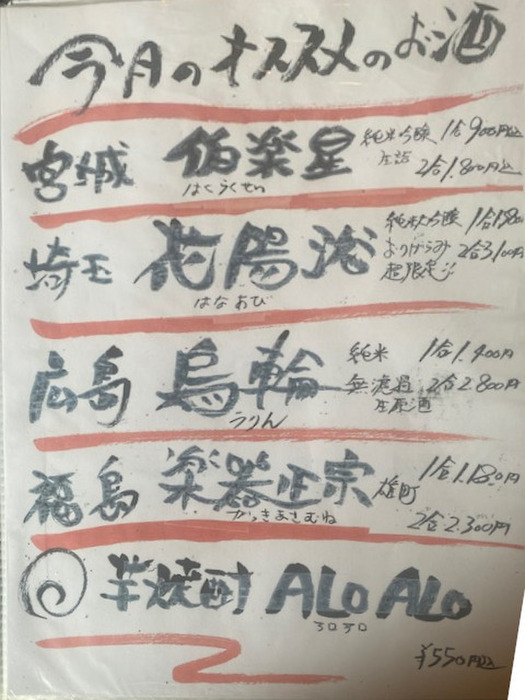 今月のオススメのお酒
宮城 伯楽星 純米吟醸 1合900円税込
はくらくせい 生詰 2合1.800円税込
埼玉 花陽浴 純米大吟醸
はなあび おりがらみ 2合3.100円
超限定!!
広島 烏輪 純米 1合1.400円
うりん 無濾過 2合2.800円
生原酒
福島 楽器正宗 雄町 1合1.180円
がっきまさむね 2合2.300円
芋焼酎 ALO ALO
¥550円税込